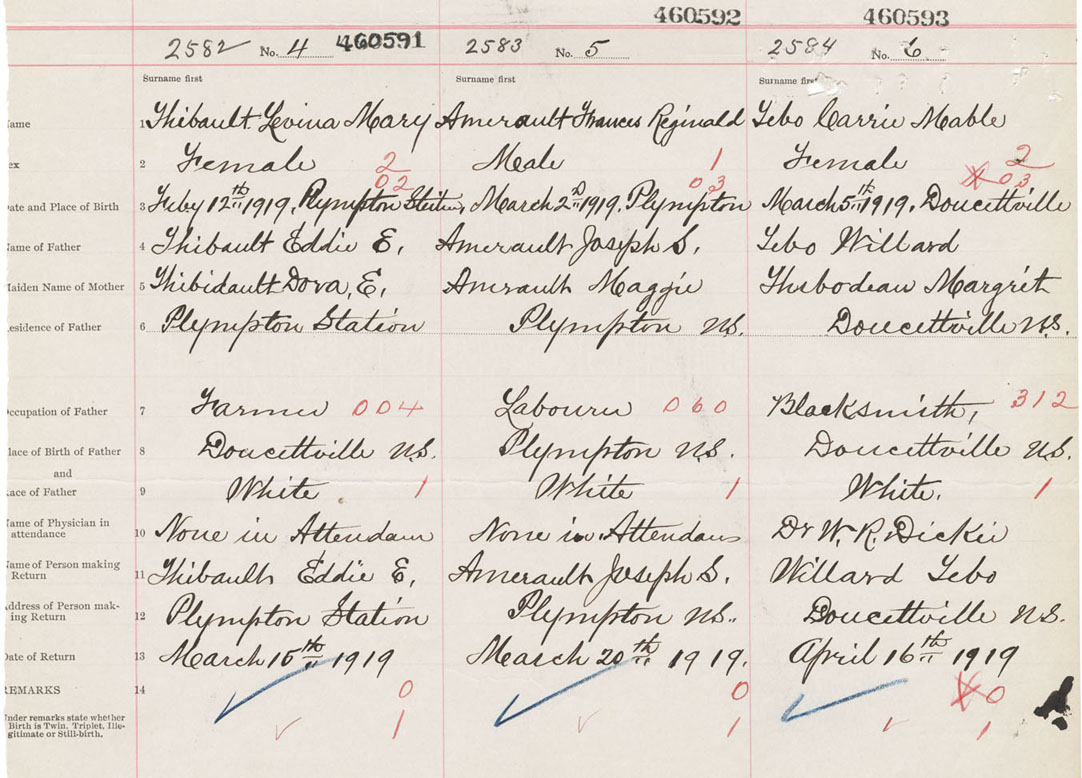 460592 460593
2582 No. 4 460591 2583 No. 5 2584 No. 6
Surname first Surname first Surname first
ame 1 Thibault Levina Mary Amerault Frances Reginald Tebo Carrie Mable
ex 2 Female 2 Male 1 Female 2
02 03 03
ate and Place of Birth 3 Feby 12th 1919, Plympton Station, March 2nd 1919, Plympton March 5th 1919, Doucettville
ame of Father 4 Thibault Eddie E. Amerault Joseph S. Tebo Willard
aiden Name of Mother 5 Thibidault Dora, E, Amrault Maggie Thibodeau Margrit
esidence of Father 6 Plympton Station Plympton N.S. Doucettville N.S.
ccupation of Father 7 Farmer 004 Labourer 060 Blacksmith, 312
lace of Birth of Father 8 Doucettville N.S. Plympton N.S. Doucettville N.S.
and
ace of Father 9 White 1 White 1 White. 1
ame of Physician in
attendance 10 None in Attendance None in Attendance Dr W. R. Dickie
ame of Person making
Return 11 Thibault Eddie E, Amerault Joseph S. Willard Tebo
ddress of Person mak-
ing Return 12 Plympton Station Plympton N.S.. Doucettville N.S.
ate of Return 13 March 15th 1919 March 20th 1919. April 16th 1919
EMARKS 14 0 0 0
nder remarks state whether
Birth is Twin, Triplet, Ille-
gitimate or Still-birth. 1 1 1